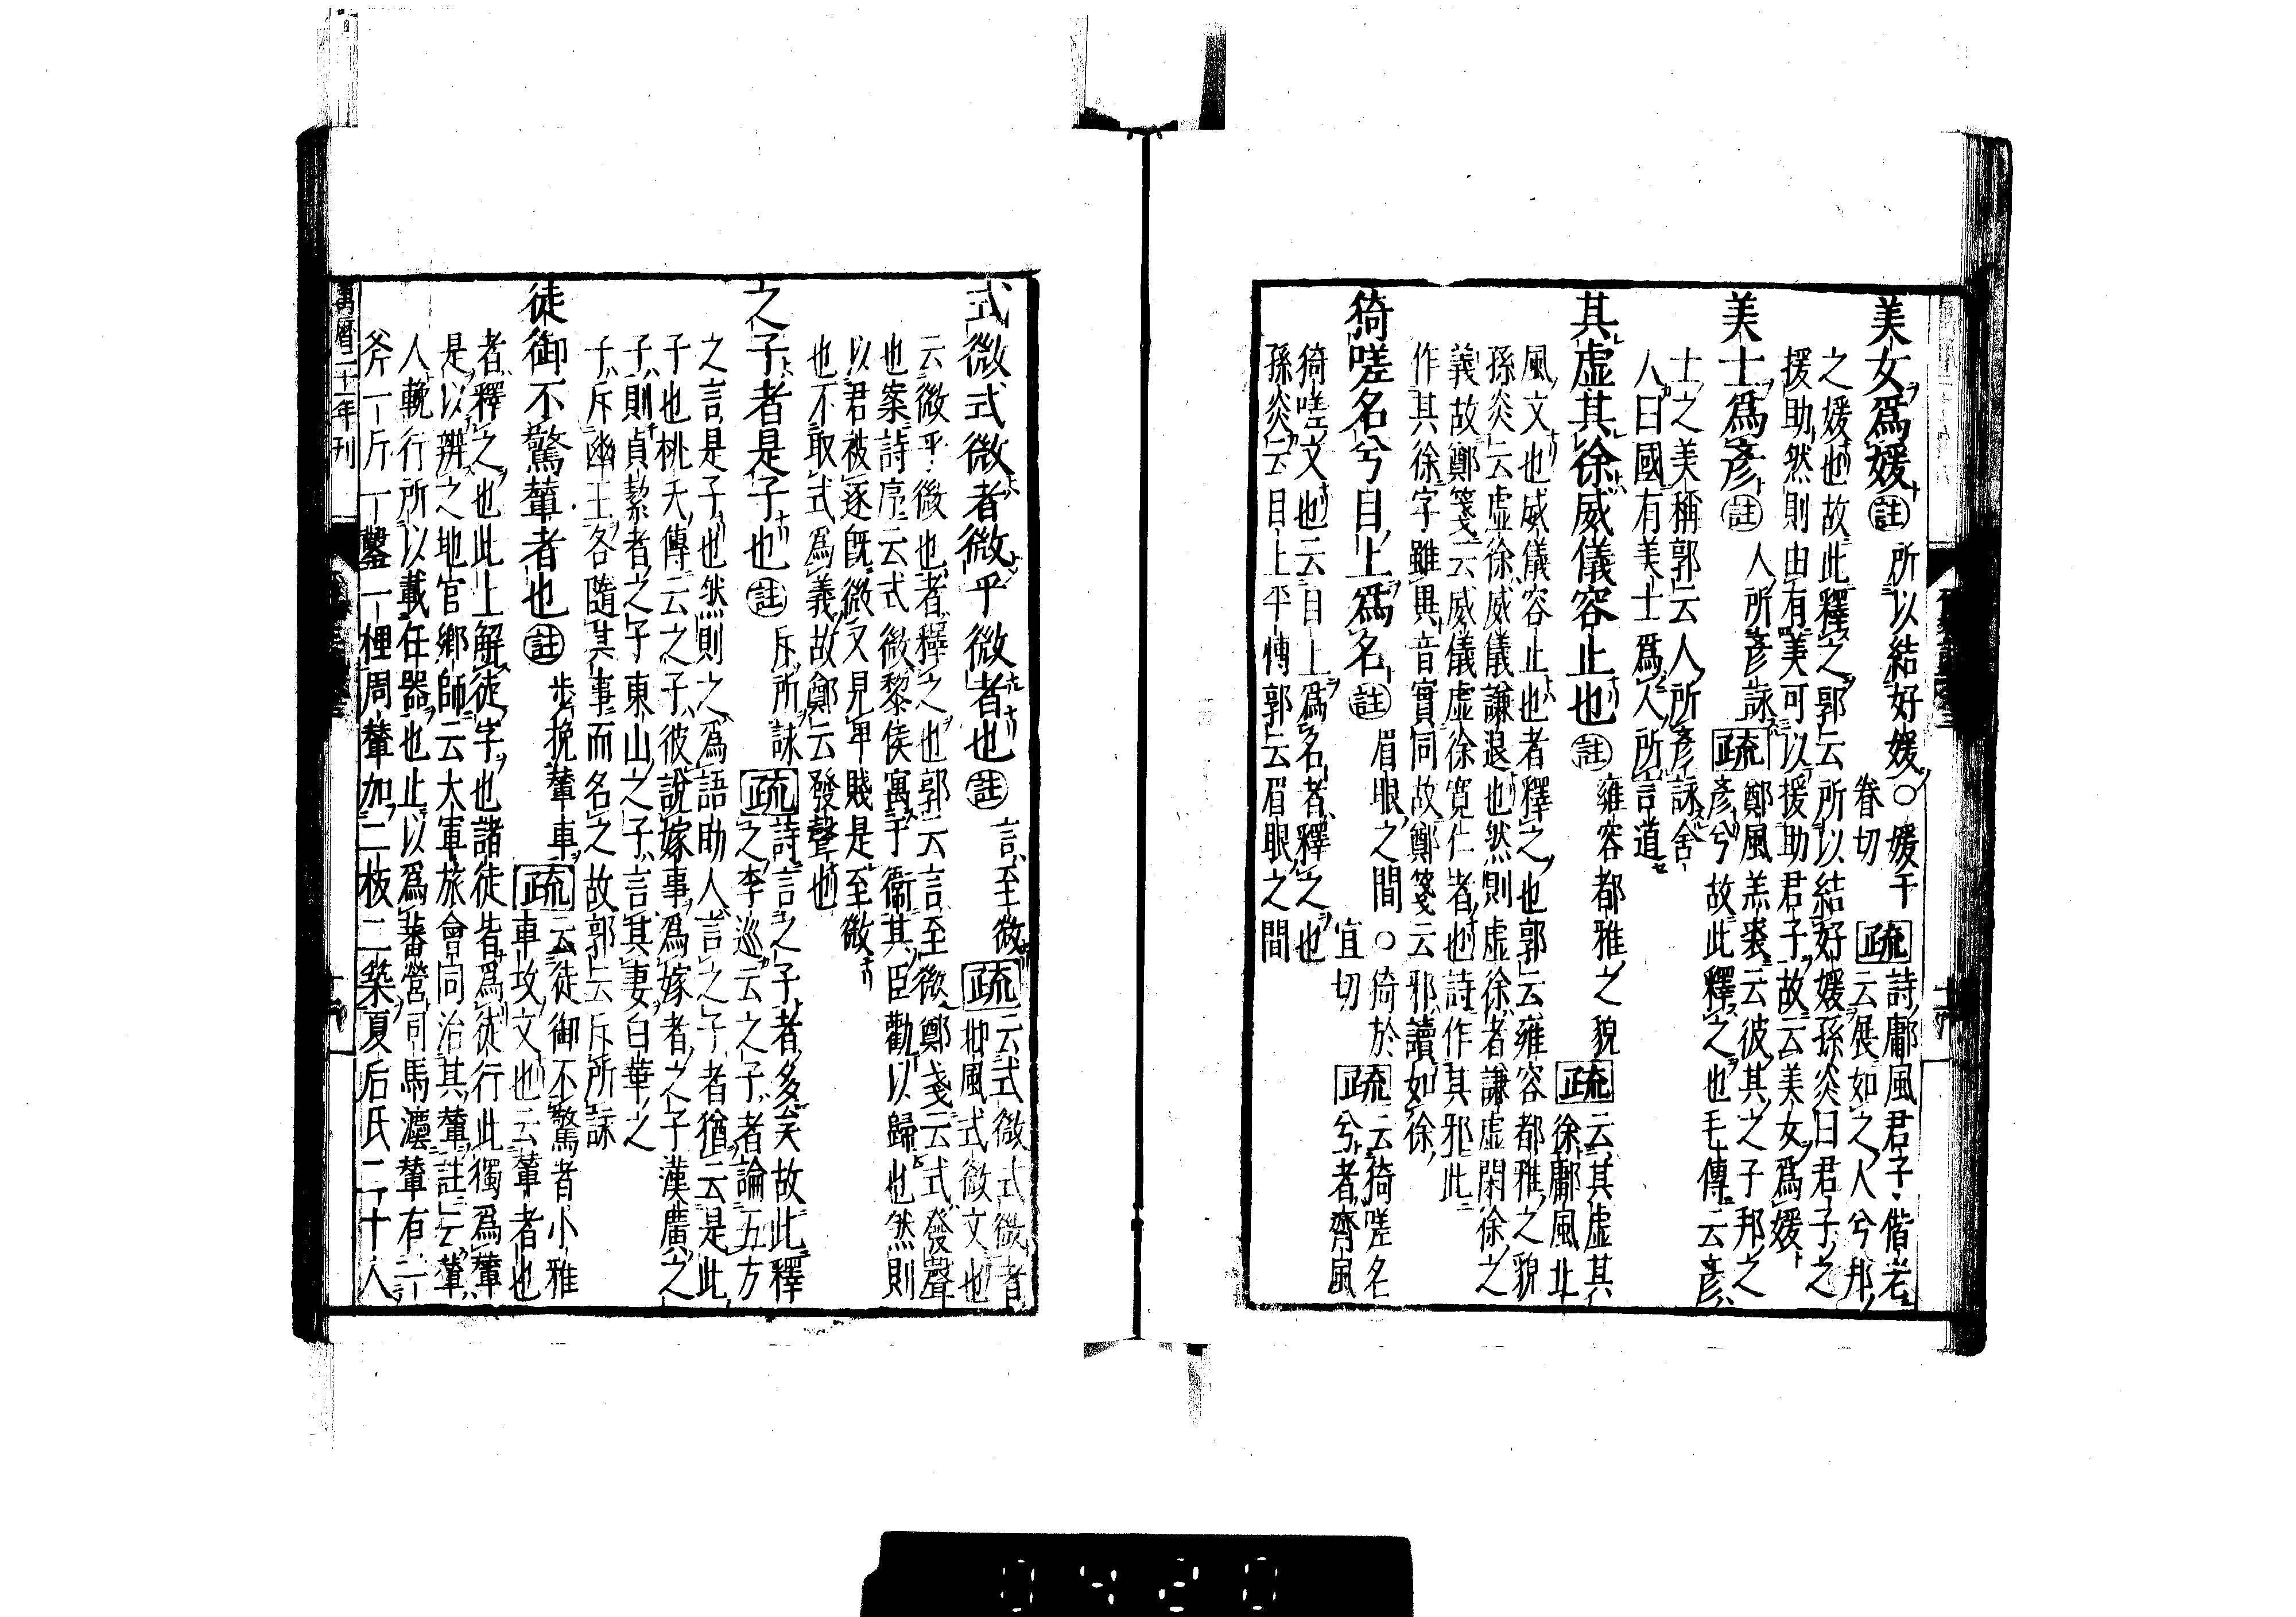 美女爲媛 註 所以結好媛○媛于眷切 疏 詩鄘風君子偕老云展如之人兮邦
之媛也故此釋之郭云所以結好媛孫炎曰君子之
援助然則由有美可以援助君子故云美女爲媛
美士爲彥 註 人所彥詠 疏 鄭風羔裘云彼其之子邦之彥兮故此釋之也毛傳云彥
士之美稱郭云人所彥詠舍
人曰國有美士爲人所言道
其虛其徐威儀容止也 註 雍容都雅之貌 疏 云其虛其徐鄘風北
風文也威儀容止也者釋之也郭云雍容都雅之貌
孫炎云虛徐威儀謙退也然則虛徐者謙虛閑徐之
義故鄭箋云威儀虛徐寬仁者也詩作其邪此
作其徐字雖異音實同故鄭箋云邪讀如徐
猗嗟名兮目上爲名 註 眉眼之間○猗於宜切 疏 云猗嗟名兮者齊風
猗嗟文也云目上爲名者釋之也
孫炎云目上平博郭云眉眼之間
式微式微者微乎微者也 註 言至微 疏 云式微式微者邶風式微文也
云微乎微也者釋之也郭云言至微鄭箋云式發聲
也案詩序云式微黎侯寓于衞其臣勸以歸也然則
以君被逐旣微又見卑賤是至微
也不取式爲義故鄭云發聲也
之子者是子也 註 斥所詠 疏 詩言之子者多矣故此釋之李巡云之子者論五方
之言是子也然則之爲語助人言之子者猶云是此
子也桃夭傳云之子彼說嫁事爲嫁者之子漢廣之
子則貞絜者之子東山之子言其妻白華之
子斥幽王各隨其事而名之故郭云斥所詠
徒御不驚輦者也 註 步挽輦車 疏 云徒御不驚者小雅車攻文也云輦者也
者釋之也此上解徒字也諸徒皆爲徒行此獨爲輦
是以辨之地官鄉師云大軍旅會同治其輦註云輦
人輓行所以載任器也止以爲蕃營司馬灋輦有一
斧一斤一鑿一梩周輦加二板二築夏后氏二十人
萬曆二十一年刊
0420